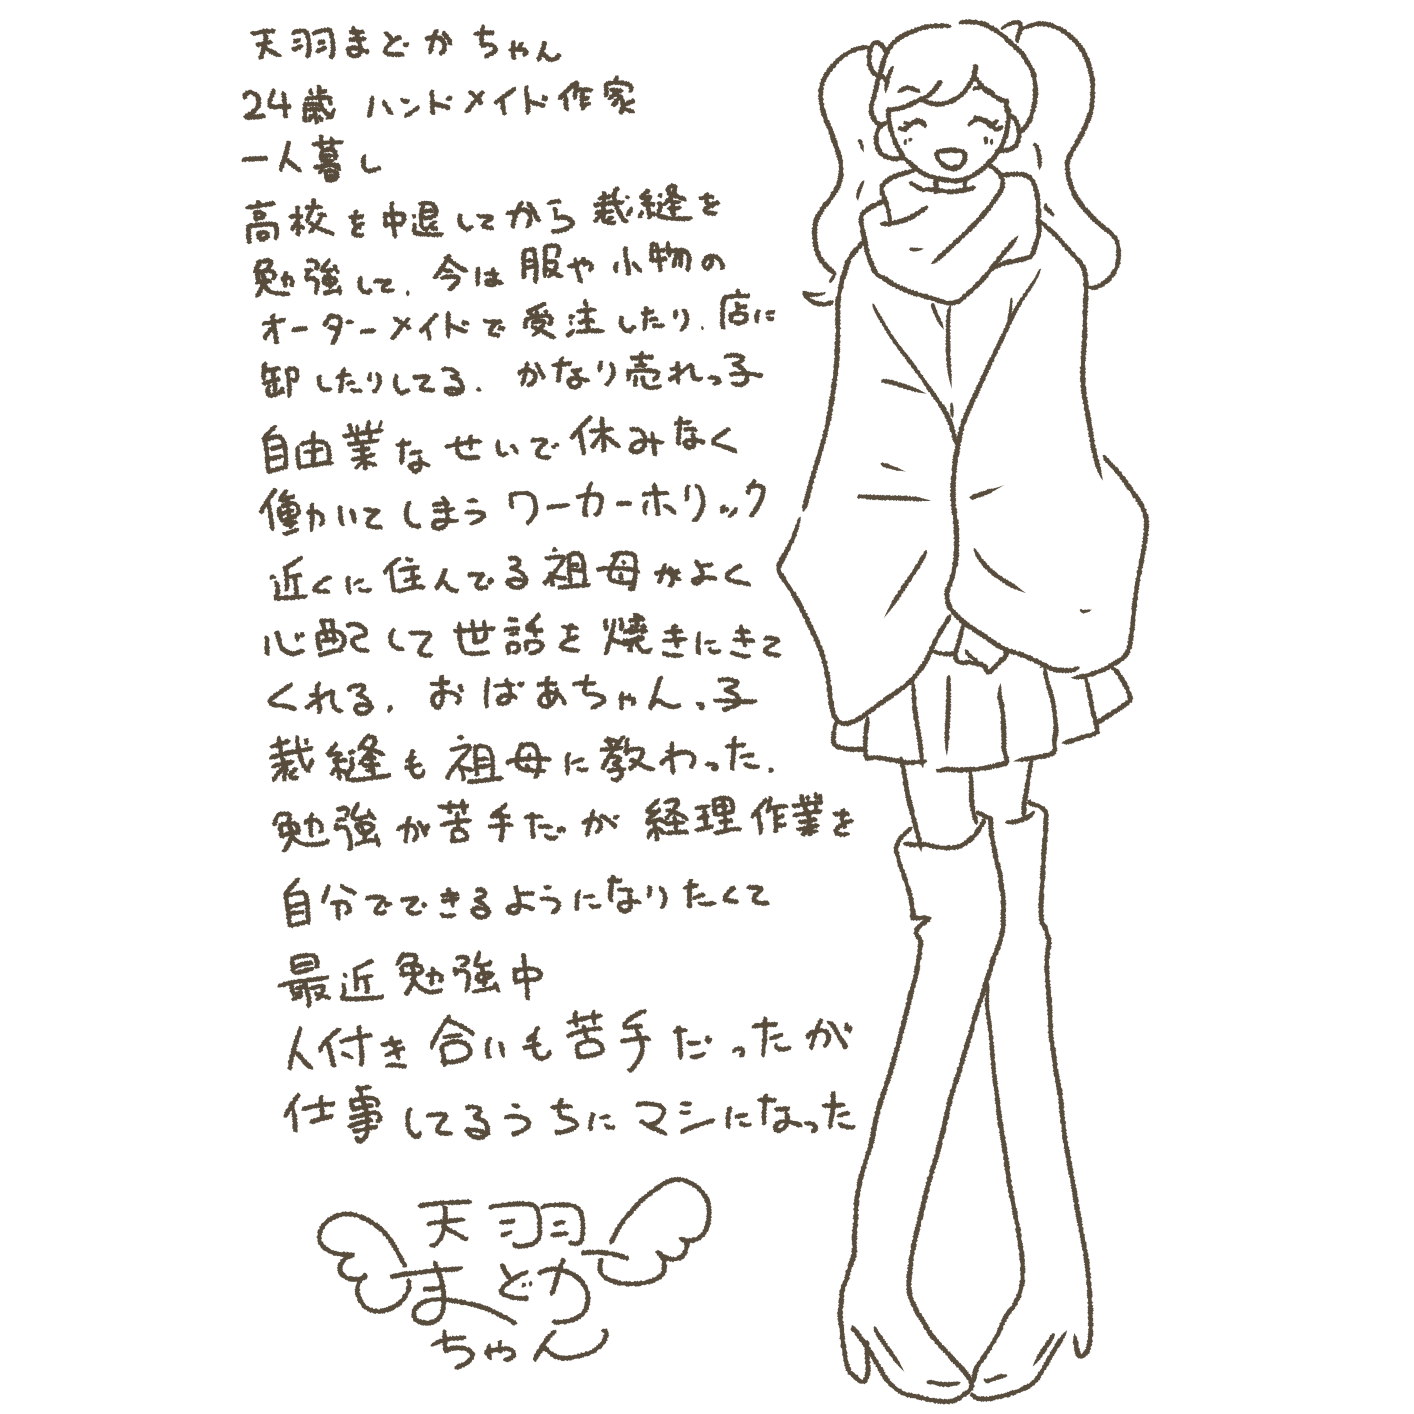 天羽まどかちゃん
24歳 ハンドメイド作家
一人暮し
高校を中退してから裁縫を
勉強して、今は服や小物の
オーダーメイドで受注したり、店に
卸したりしてる。かなり売れっ子
自由業なせいで休みなく
働いてしまうワーカーホリック
近くに住んでる祖母がよく
心配して世話を焼きにきて
くれる。おばあちゃんっ子
裁縫も祖母に教わった。
勉強が苦手だが経理作業を
自分でできるようになりたくて
最近勉強中
人付き合いも苦手だったが
仕事してるうちにマシになった
天羽
まどか
ちゃん